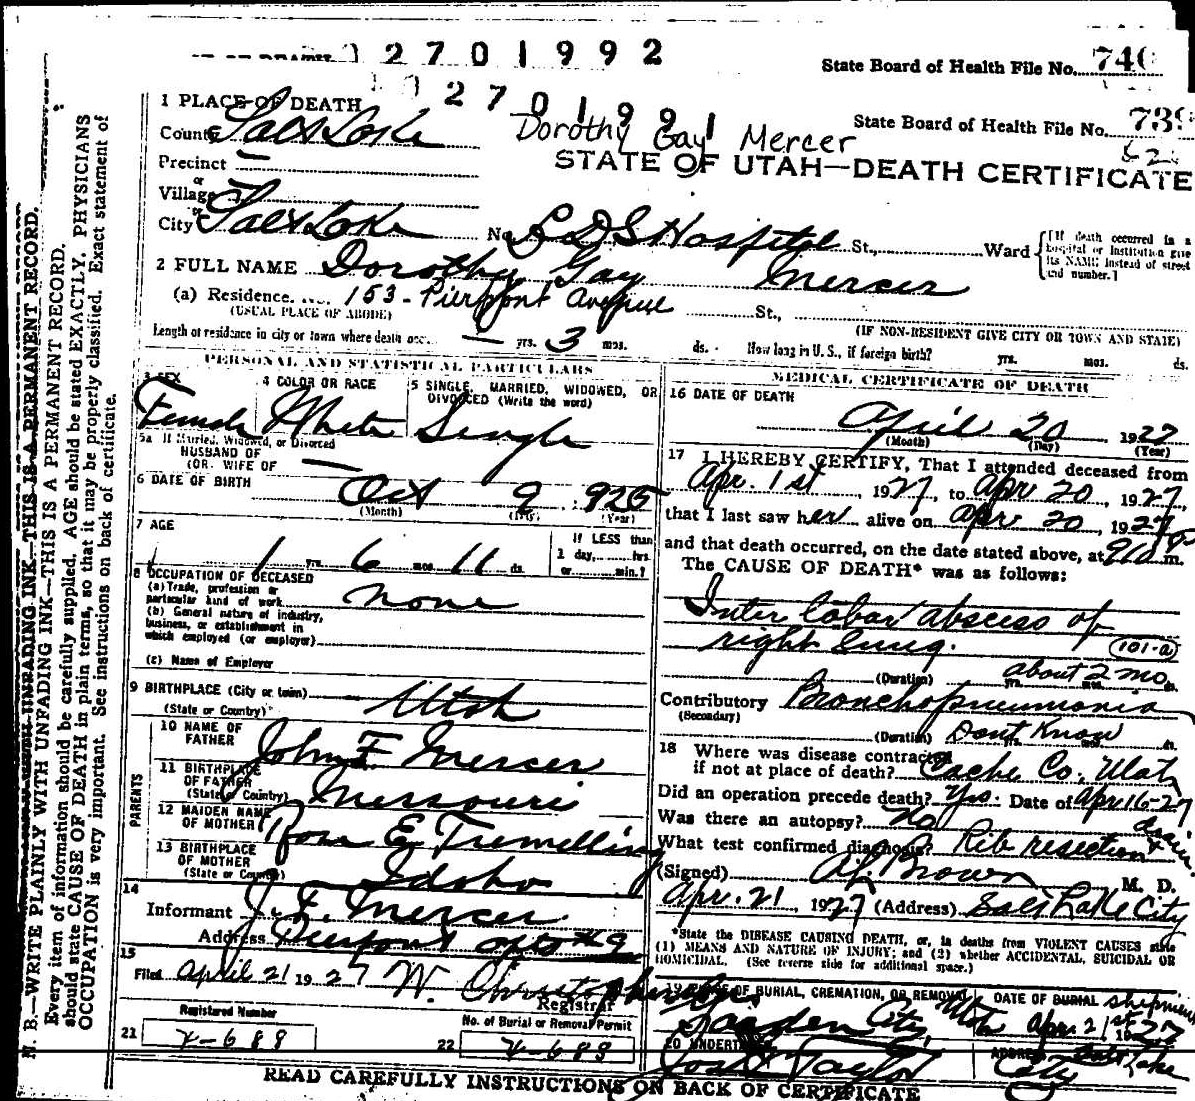 2 7 0 1 9 9 2
State Board of Health File No. 740
2 7 0 1 9 9 1
State Board of Health File No. 739
1 PLACE OF DEATH
County Salt Lake
Dorothy Gay Mercer
STATE OF UTAH—DEATH CERTIFICATE
Precinct —
or
Village
or
City Salt Lake No. L D S Hospital St., Ward
[If death occurred in a hospital or institution give its NAME instead of street and number.]
2 FULL NAME Dorothy Gay Mercer
(a) Residence. No. 153 - Pierpont Avenue St.,
(USUAL PLACE OF ABODE)
(IF NON-RESIDENT GIVE CITY OR TOWN AND STATE)
Length of residence in city or town where death occ. — yrs. 3 mos. ds. How long in U. S., if foreign birth? yrs. mos. ds.
PERSONAL AND STATISTICAL PARTICULARS
3 SEX
Female
4 COLOR OR RACE
White
5 SINGLE, MARRIED, WIDOWED, OR DIVORCED (Write the word)
Single
5a If Married, Widowed, or Divorced
HUSBAND OF
(OR. WIFE OF —
6 DATE OF BIRTH
Oct 9 1925
(Month) (Day) (Year)
7 AGE
1 yrs. 6 mos 11 ds.
If LESS than
1 day, hrs.
or min.?
8 OCCUPATION OF DECEASED
(a) Trade, profession or
particular kind of work none
(b) General nature of industry,
business, or establishment in
which employed (or employer)
(c) Name of Employer
9 BIRTHPLACE (City or town)
(State or Country) Utah
PARENTS
10 NAME OF
FATHER John F Mercer
11 BIRTHPLACE
OF FATHER
(State or Country) Missouri
12 MAIDEN NAME
OF MOTHER Rose E Tremelling
13 BIRTHPLACE
OF MOTHER
(State or Country) Idaho
14
Informant J. F. Mercer
Address Pierpont apts #9
15
Filed April 21 1927 W.
Registrar
Registered Number
21
No. of Burial or Removal Permit
22
MEDICAL CERTIFICATE OF DEATH
16 DATE OF DEATH
April 20 1927
(Month) (Day) (Year)
17 I HEREBY CERTIFY, That I attended deceased from
Apr. 1st, 1927, to Apr 20, 1927,
that I last saw her alive on Apr 20, 1927
and that death occurred, on the date stated above, at m.
The CAUSE OF DEATH* was as follows:
Inter lobar abscess of
right lung. 101-a
(Duration) about 2 mo.
Contributory Bronchopneumonia
(Secondary)
(Duration) Dont Know
18 Where was disease contracted
if not at place of death? Cache Co. Utah
Did an operation precede death? Yes. Date of Apr 16-27
Was there an autopsy? No
What test confirmed diagnosis? Rib resection
(Signed) Brown M. D.
Apr. 21, 1927 (Address) Salt Lake City
*State the DISEASE CAUSING DEATH, or, in deaths from VIOLENT CAUSES state
(1) MEANS AND NATURE OF INJURY; and (2) whether ACCIDENTAL, SUICIDAL OR
HOMICIDAL. (See reverse side for additional space.)
19 PLACE OF BURIAL, CREMATION, OR REMOVAL
City, Utah
DATE OF BURIAL shipment
Apr. 21st 1927
20 UNDERTAKER
Taylor
ADDRESS Salt Lake
City
READ CAREFULLY INSTRUCTIONS ON BACK OF CERTIFICATE
N. B.—WRITE PLAINLY WITH UNFADING INK—THIS IS A PERMANENT RECORD.
Every item of information should be carefully supplied. AGE should be stated EXACTLY. PHYSICIANS
should state CAUSE OF DEATH in plain terms, so that it may be properly classified. Exact statement of
OCCUPATION is very important. See instructions on back of certificate.